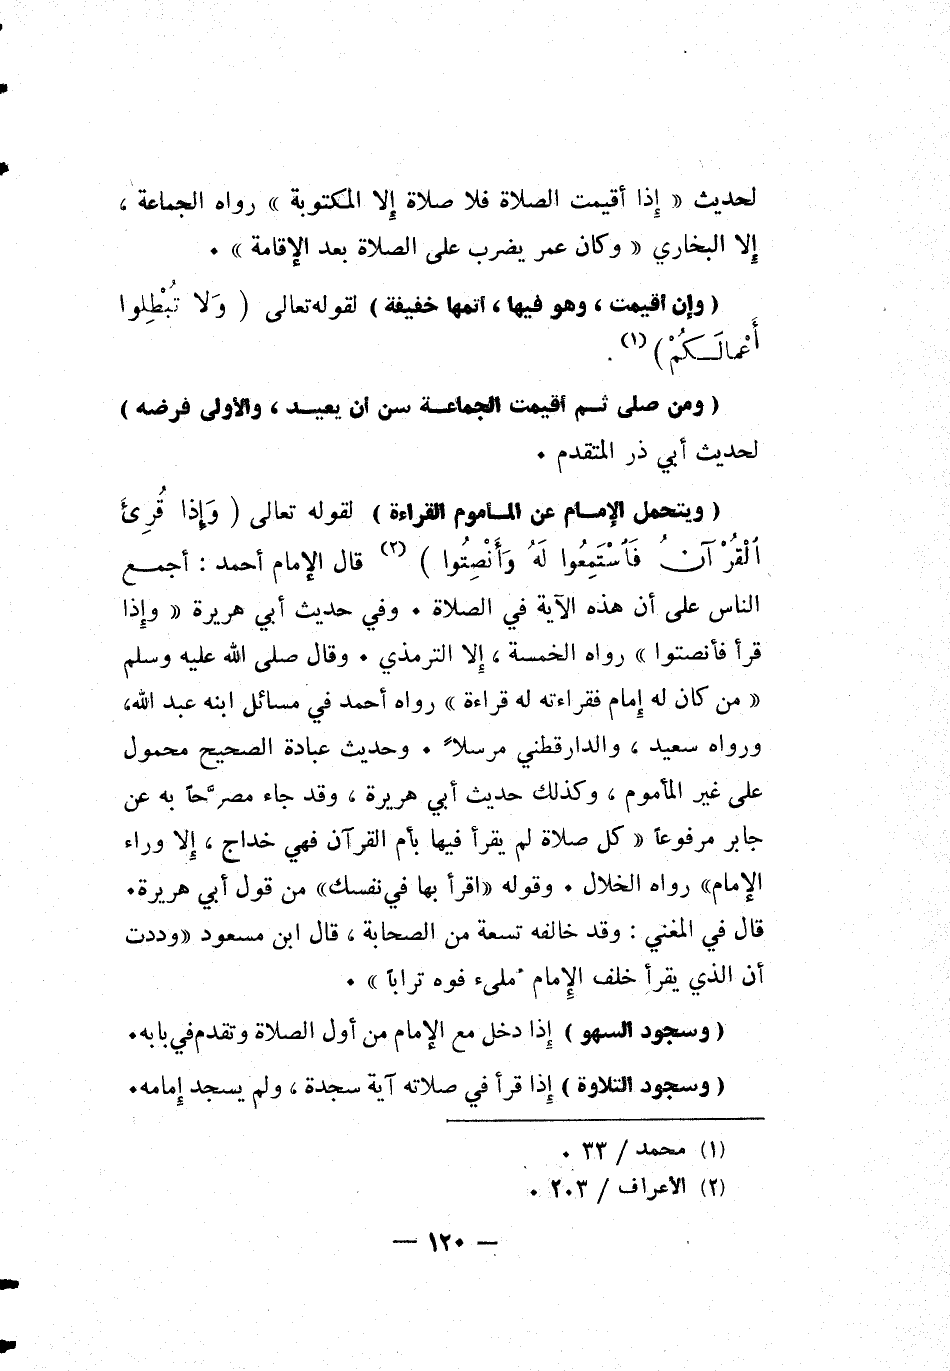 لحديث « إذا أقيمت الصلاة فلا صلاة إلا المكتوبة » رواه الجماعة ،
إلا البخاري « وكان عمر يضرب على الصلاة بعد الإقامة » ٠
( وإن أقيمت ، وهو فيها ، أتمها خفيفة ) لقوله تعالى ( وَلَا تُبْطِلوا
أَعْمالَكُمْ ) (١) .
( ومن صلى ثم أقيمت الجماعة سن أن يعيد ، والأولى فرضه )
لحديث أبي ذر المتقدم ٠
( ويتحمل الإمام عن المأموم القراءة ) لقوله تعالى ( وَإِذا قُرِئَ
ٱلْقُرْآنُ فَٱسْتَمِعُوا لَهُ وَأَنْصِتُوا ) (٢) قال الإمام أحمد : أجمع
الناس على أن هذه الآية في الصلاة ٠ وفي حديث أبي هريرة « وإذا
قرأ فأنصتوا » رواه الخمسة ، إلا الترمذي ٠ وقال صلى الله عليه وسلم
« من كان له إمام فقراءته له قراءة » رواه أحمد في مسائل ابنه عبد الله،
ورواه سعيد ، والدارقطني مرسلاً ٠ وحديث عبادة الصحيح محمول
على غير المأموم ، وكذلك حديث أبي هريرة ، وقد جاء مصرَّحاً به عن
جابر مرفوعاً « كل صلاة لم يقرأ فيها بأم القرآن فهي خداج ، إلا وراء
الإمام» رواه الخلال ٠ وقوله «اقرأ بها في نفسك» من قول أبي هريرة٠
قال في المغني : وقد خالفه تسعة من الصحابة ، قال ابن مسعود «وددت
أن الذي يقرأ خلف الإمام مُلىء فوه تراباً » ٠
( وسجود السهو ) إذا دخل مع الإمام من أول الصلاة وتقدم في بابه٠
( وسجود التلاوة ) إذا قرأ في صلاته آية سجدة ، ولم يسجد إمامه٠
(١) محمد / ٣٣ ٠
(٢) الأعراف / ٢٠٣ ٠
— ١٢٠ —